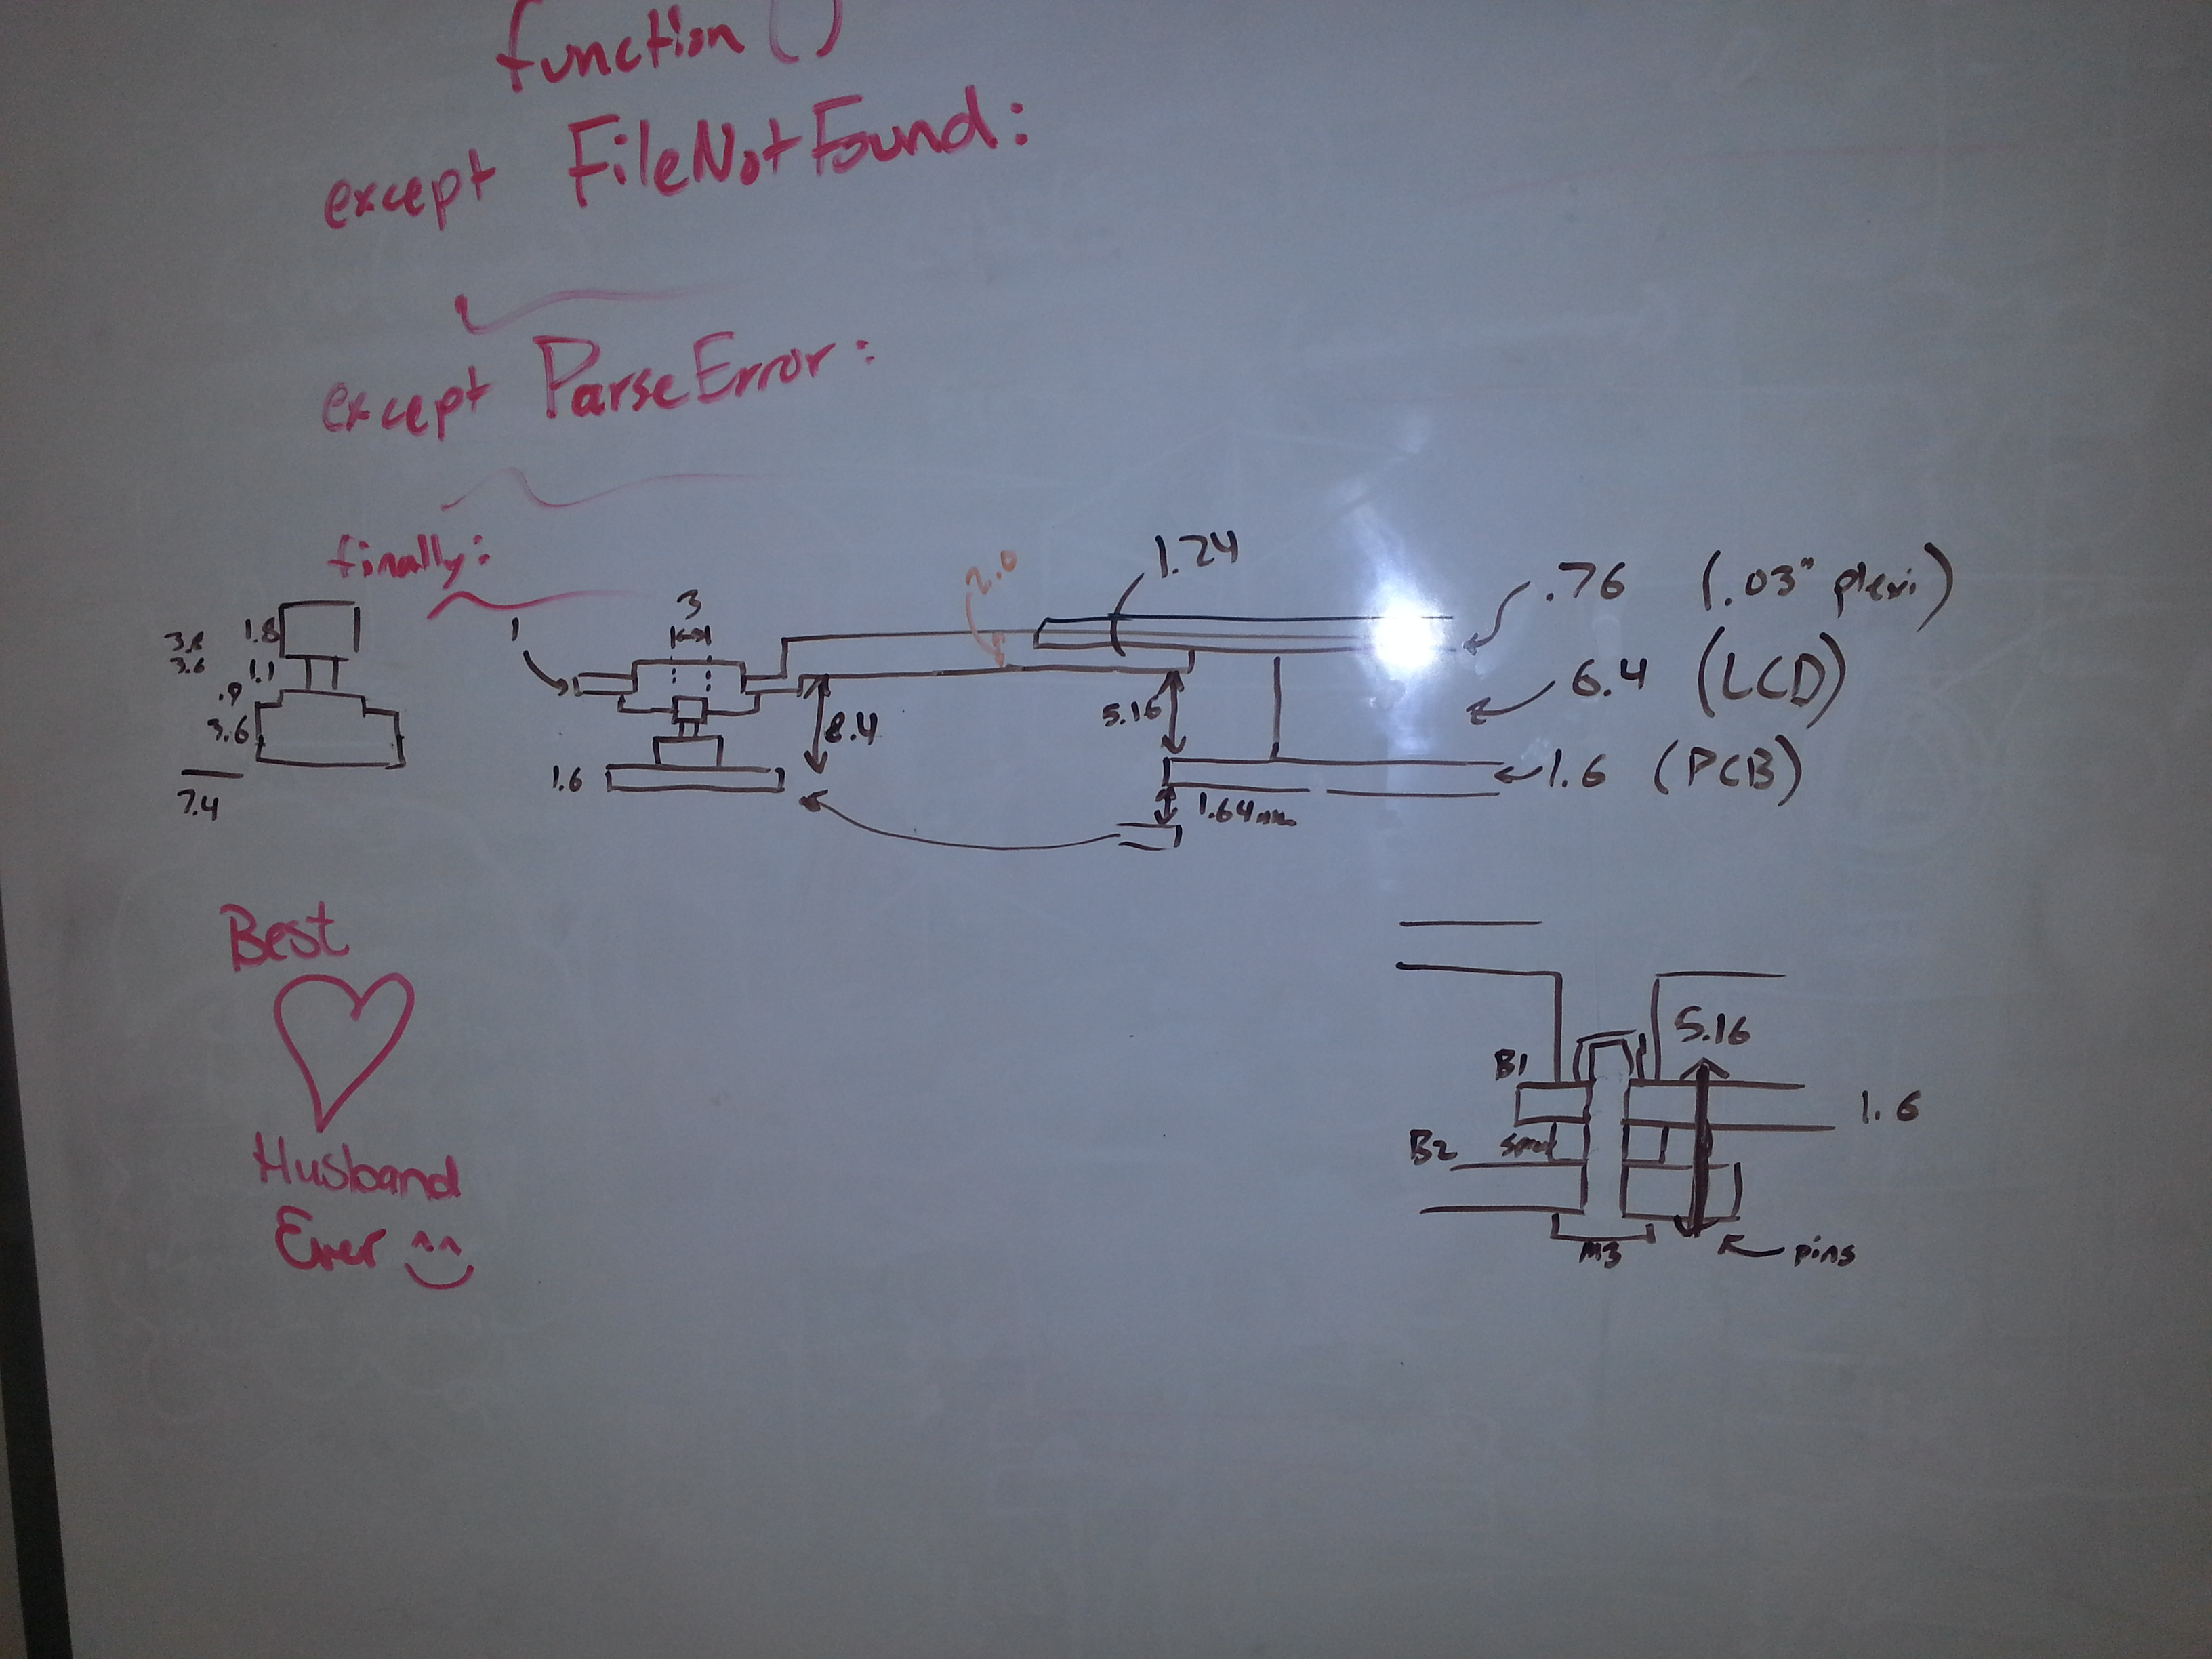 function()
except FileNotFound:
except ParseError:
finally:
3.8
3.6
1.8
1.1
.9
3.6
7.4
1
3
1.6
8.4
2.0
1.24
5.16
1.64mm
.76 (.03" plexi)
6.4 (LCD)
1.6 (PCB)
Best
Husband
Ever
B1
B2
5.16
1.6
M3
pins